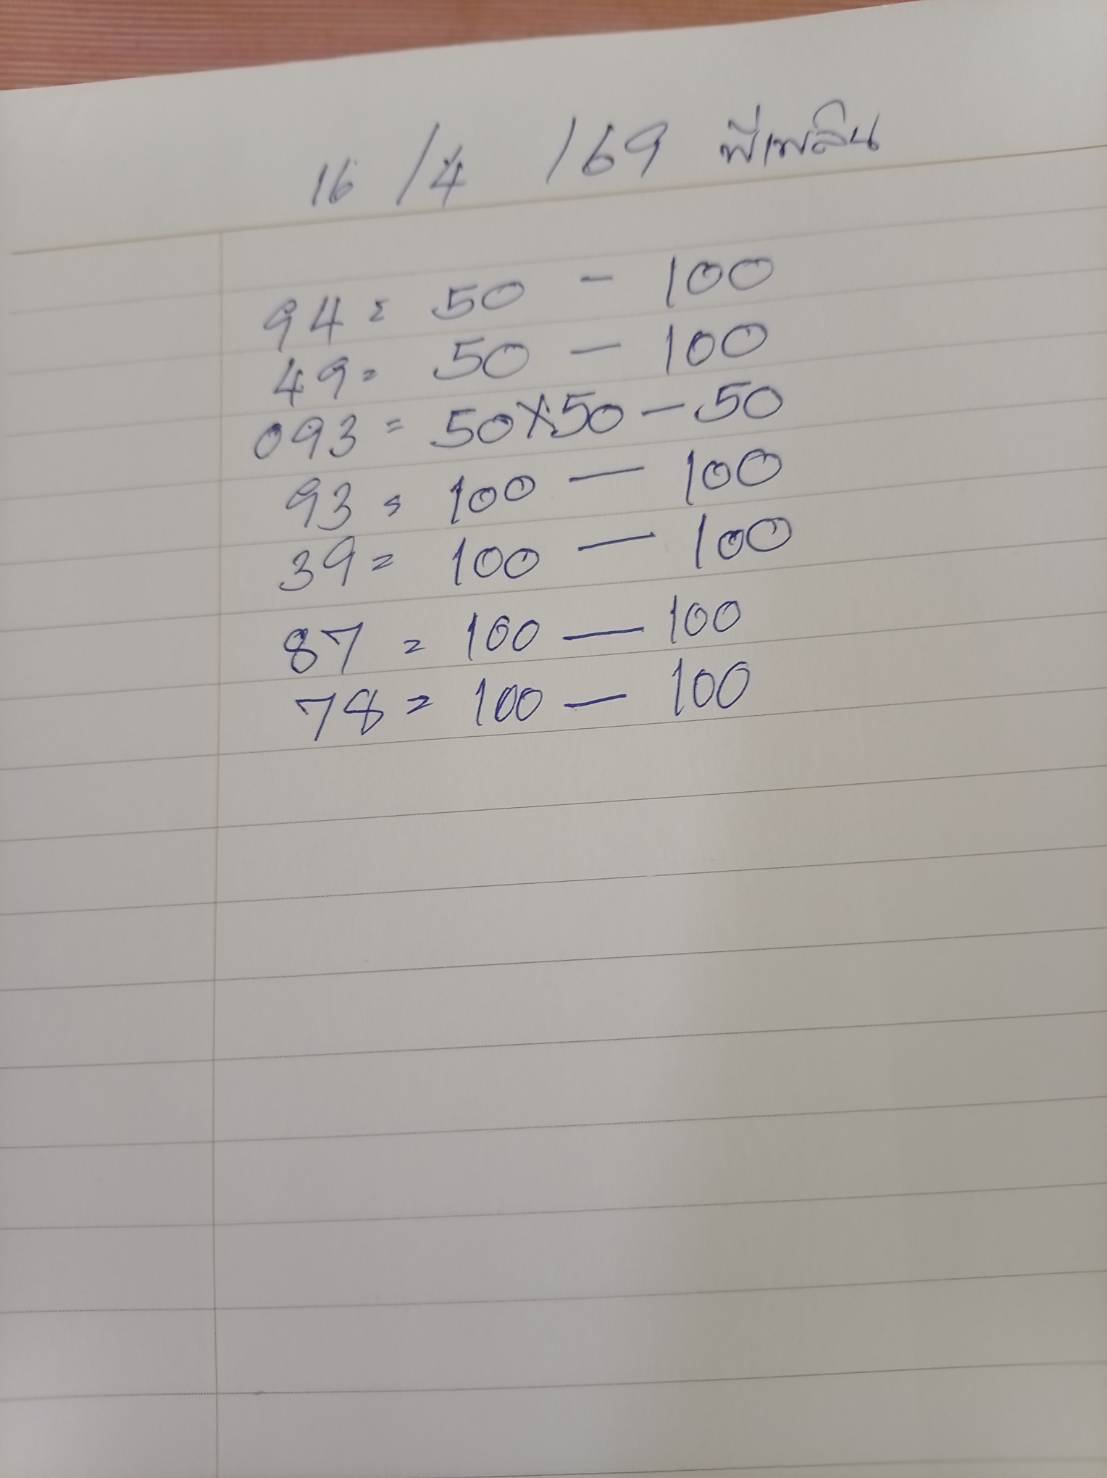 16/4/69 พี่เพลิน
94= 50 - 100
49= 50 - 100
093= 50x50-50
93= 100 - 100
39= 100 - 100
87= 100 - 100
78= 100 - 100